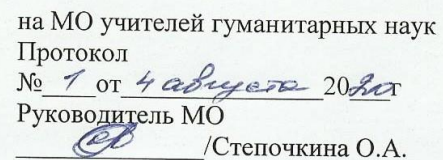 на МО учителей гуманитарных наук
Протокол
№ 1 от 4 августа 2020г
Руководитель МО
/Степочкина О.А.